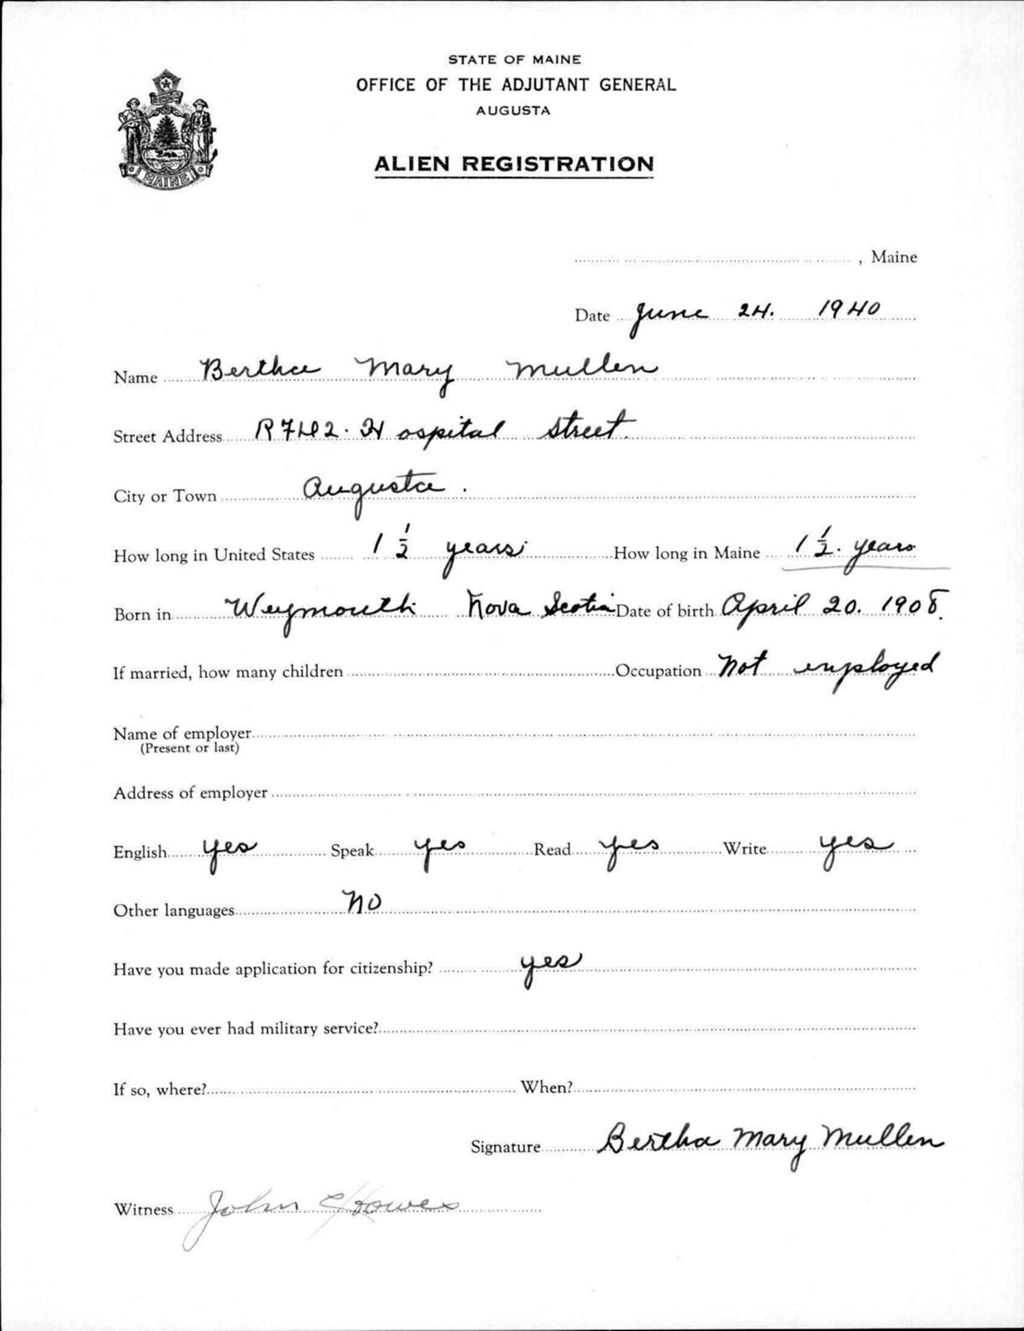 STATE OF MAINE
OFFICE OF THE ADJUTANT GENERAL
AUGUSTA
ALIEN REGISTRATION
MAINE
, Maine
Date June 24. 1940
Name Bertha Mary Mullen
Street Address Hospital Street.
City or Town Augusta.
How long in United States 1 1/2 years How long in Maine 1 1/2. years
Born in Weymouth Nova Scotia Date of birth April 20. 1908.
If married, how many children Occupation Not employed
Name of employer
(Present or last)
Address of employer
English yes Speak yes Read yes Write yes
Other languages No
Have you made application for citizenship? yes
Have you ever had military service?
If so, where? When?
Signature Bertha Mary Mullen
Witness John Howes